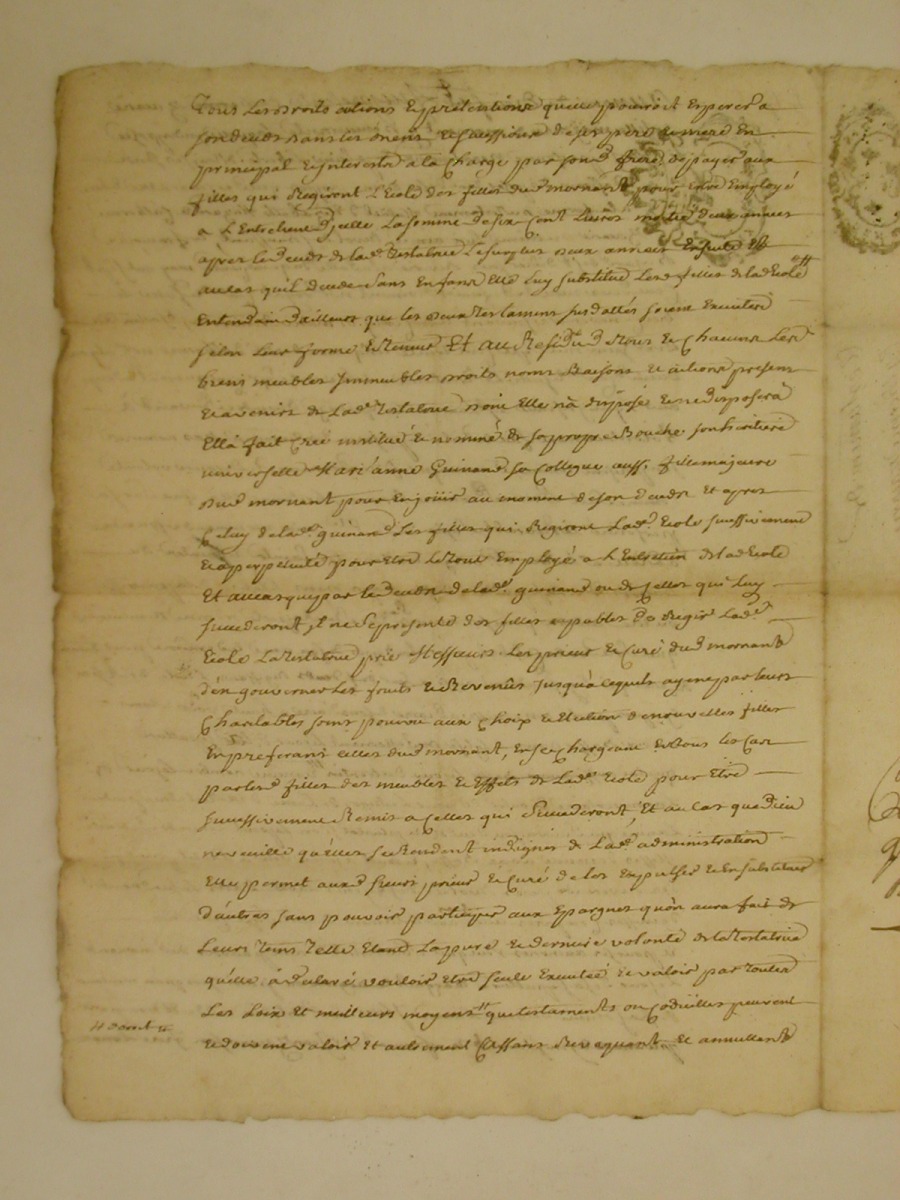 Tous les droits actions & prétentions quelle pourroit exercer a
son deceds dans les biens & successions de ses pere & mere en
principal & interests a la charge par sond. frere de payer aux
filles qui Regiront l'Ecole des filles dud mornant pour etre Employé
a l'Entretient d'jcelle La somme de six Cent Livres moitié deux années
après le deceds de lad. Testatrice Le surplus deux années Ensuite Et
au cas quil decede sans Enfans Elle luy substitue Les d. filles de lad Ecole
Entendant d'ailleurs que les deux Testamens susdattés soient Executés
selon leur forme & teneur Et au Residu de tous & Chacuns Les
biens meubles jmmeubles droits noms Raisons & actions present
& avenirs de Lad. Testatrice dont Elle n'a disposé & ne disposera
Ella fait Créé institué & nommé de sa propre Bouche son heritiere
universelle Marianne Guinand sa Collegue aussi fille majeure
dud mornant pour En joüir au moment de son deceds Et apres
Celuy de lad. guinand Les filles qui Regiront Lad. Ecole successivement
& a perpetuité pour Etre Le tout Employé a l'Entretien de lad Ecole
Et au cas que par le deceds de lad. guinand ou de Celles qui luy
succederont, jl ne se presente des filles capables de Regir Lad.
Ecole La testatrice prie Messieurs Les prieur & Curé dud mornant
d'en gouverner Les fruits & Revenûs jusqu'a ce quils ayent par leurs
Charitables soins pourvu aux Choix & Election de nouvelles filles
En preferant celles dud mornant, En se Chargeant En tous les Cas
par les d. filles des meubles & Effets de Lad. Ecole pour Etre
successivement Remis a Celles qui succederont, Et au Cas que Dieu
ne veuille qu'elles se Rendent indignes de Lad. administration
Elle permet auxd sieurs prieur & Curé de les Expulser & En substituer
d'autres sans pouvoir participer aux Epargnes qu'on aura fait de
Leurs tems Telle Etant La pure & derniere volonté de la Testatrice
qu'elle a declaré vouloir Etre seule Executée & valoir par toutes
Les Loix Et meilleurs moyens que testaments ou Codicilles peuvent
& doivent valoir Et autrement Cassant Revoquant Et annullant